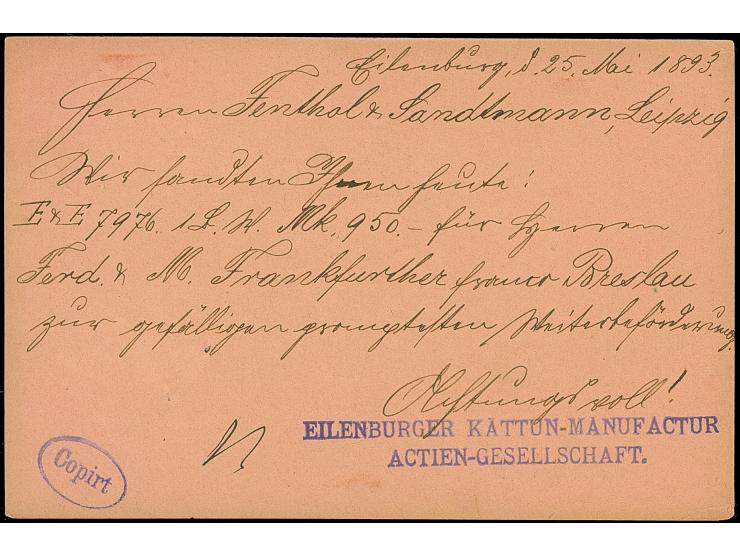 Eilenburg, d. 25. Mai 1893.
Herren Fenthol & Sandtmann, Leipzig
Wir sandten Ihnen heute:
E & E 7976. 1 B. W. Mk. 950.- für Herren
Ferd. & M. Frankfurther franco Breslau
zur gefälligen promptesten Weiterbeförderung.
Achtungsvoll!
EILENBURGER KATTUN-MANUFACTUR
ACTIEN-GESELLSCHAFT.
Copirt